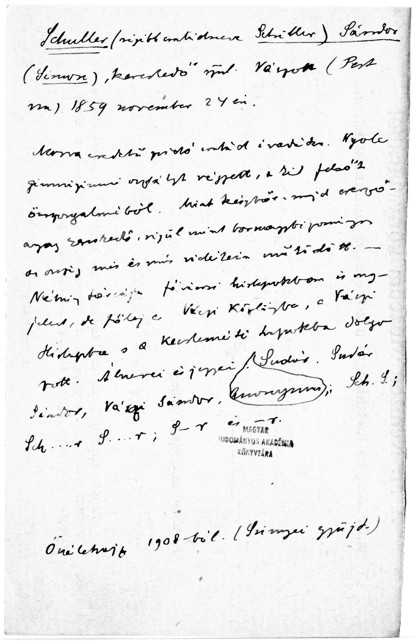 Schuller (régibb családneve Schiller) Sándor
(Simon), kereskedő szül. Vácott (Pest
m.) 1859 november 24 én.
Morva eredetű zsidó család ivadéka. Nyolc
gimnáziumi osztályt végzett, a két felsőt
önszorgalmából. Mint könyvelő, majd
kereskedő, végül mint
az ország más és más vidékein működött. —
Néhány tárcája fővárosi hirlapokban is meg-
jelent, de főleg a Váczi Közlönybe, a Váczi
Hirlapba s a Kecskeméti Lapokba dolgo
zott. Álnevei és jegyei: Sudár. Sudár
Sándor, Váczi Sándor, Anonymus; Sch. S.;
Sch....r S....r; S—r és —r.
MAGYAR
TUDOMÁNYOS AKADÉMIA
KÖNYVTÁRA
Önéletrajz 1908-ból. (Szinnyei gyűjt.)